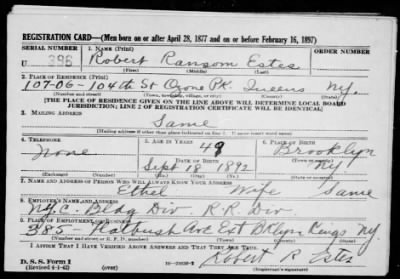 REGISTRATION CARD—(Men born on or after April 28, 1877 and on or before February 16, 1897)
SERIAL NUMBER 1. NAME (Print) ORDER NUMBER
U 396 Robert Ransom Estes
2. PLACE OF RESIDENCE (Print)
107-06-104th St Ozone Pk. Queens N.Y.
(Number and street) (Town, township, village, or city) (County) (State)
[THE PLACE OF RESIDENCE GIVEN ON THE LINE ABOVE WILL DETERMINE LOCAL BOARD
JURISDICTION; LINE 2 OF REGISTRATION CERTIFICATE WILL BE IDENTICAL]
3. MAILING ADDRESS
Same
[Mailing address if other than place indicated on line 2. If same insert word same]
4. TELEPHONE 5. AGE IN YEARS 6. PLACE OF BIRTH
None 49 Brooklyn
DATE OF BIRTH
Sept 18 1892 N.Y.
7. NAME AND ADDRESS OF PERSON WHO WILL ALWAYS KNOW YOUR ADDRESS
Ethel Wife Same
8. EMPLOYER'S NAME AND ADDRESS
N.Y.C. Bldg Div R.R. Div.
9. PLACE OF EMPLOYMENT OR BUSINESS
385- Flatbush Ave Ext Bklyn. Kings N.Y.
(Number and street or R. F. D. number) (Town) (County) (State)
I AFFIRM THAT I HAVE VERIFIED ABOVE ANSWERS AND THAT THEY ARE TRUE.
D. S. S. Form 1
(Revised 4-1-42) (over) Robert R Estes
(Registrant's signature)